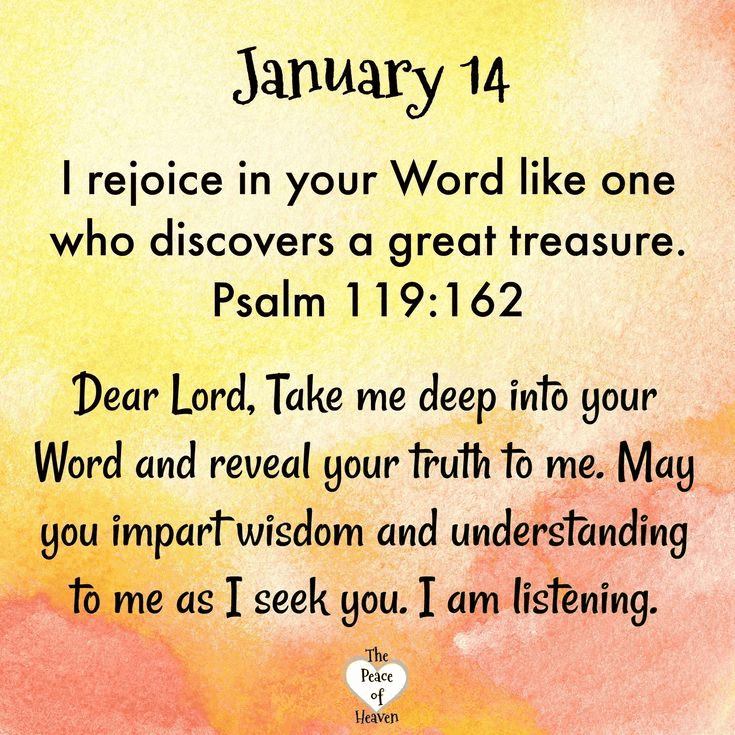 January 14
I rejoice in your Word like one
who discovers a great treasure.
Psalm 119:162
Dear Lord, Take me deep into your
Word and reveal your truth to me. May
you impart wisdom and understanding
to me as I seek you. I am listening.
The
Peace
of
Heaven